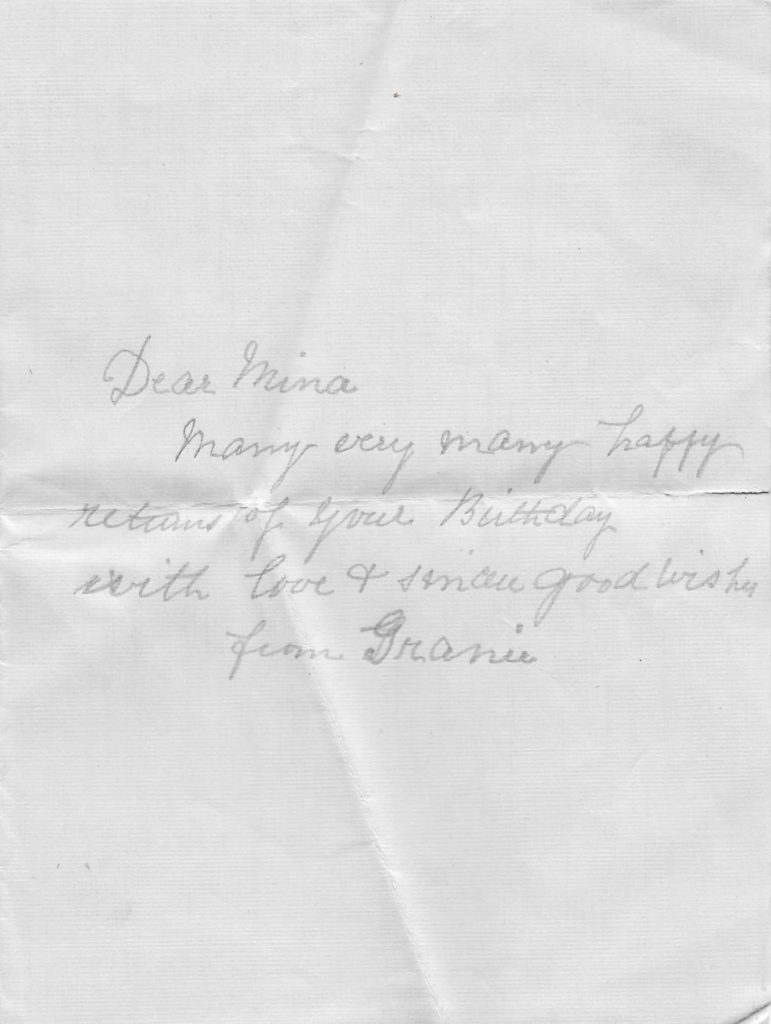 Dear Mina
Many very many happy
returns of your Birthday
with love & sincere good wishes
from Granie